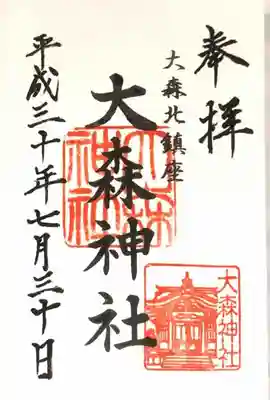 奉拝
大森北鎮座
大森神社
平成三十年七月三十日
大森神社
大森神社